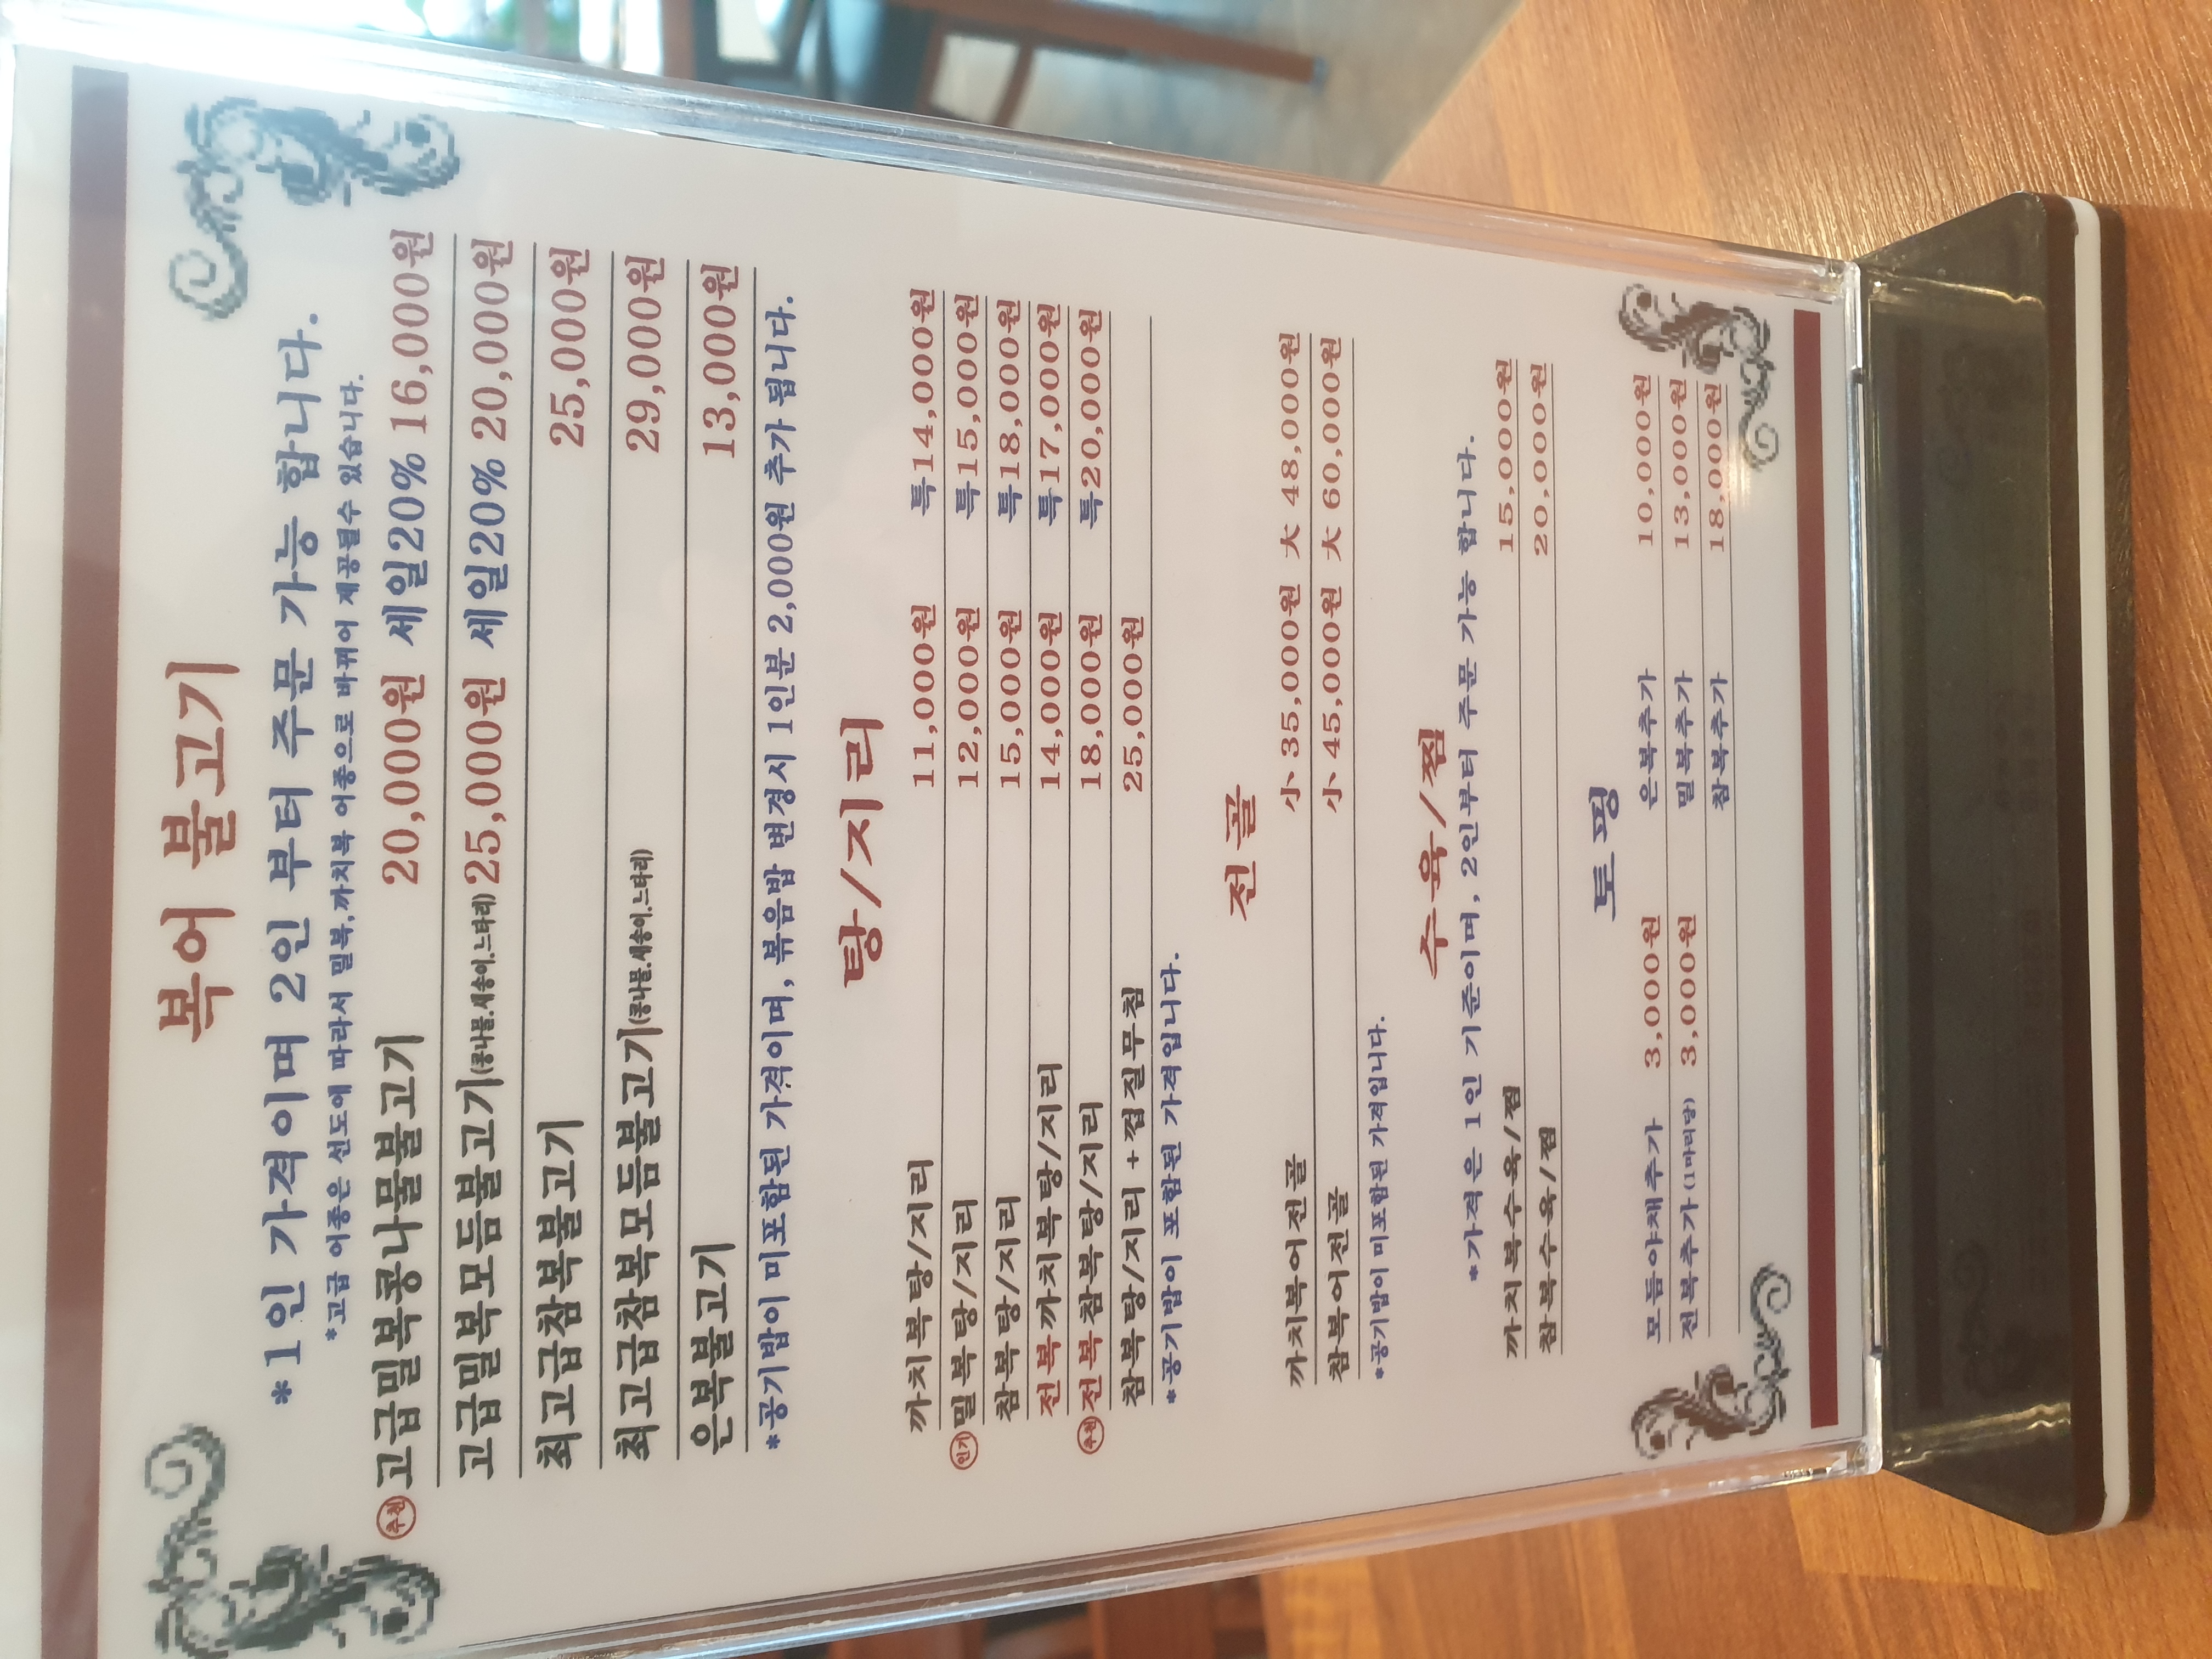 복어 불고기
*1인 가격이며 2인 부터 주문 가능 합니다.
*고급 어종은 선도에 따라서 밀복,까치복 어종으로 바뀌어 제공될수 있습니다.
추천 고급밀복콩나물불고기 20,000원 세일20% 16,000원
고급밀복모듬불고기(콩나물.새송이.느타리) 25,000원 세일20% 20,000원
최고급참복불고기 25,000원
최고급참복모듬불고기(콩나물.새송이.느타리) 29,000원
은복불고기 13,000원
*공기밥이 미포함된 가격이며, 볶음밥 변경시 1인분 2,000원 추가 됩니다.
탕/지리
까치복탕/지리 11,000원 특14,000원
인기 밀복탕/지리 12,000원 특15,000원
참복탕/지리 15,000원 특18,000원
전복까치복탕/지리 14,000원 특17,000원
추천 전복참복탕/지리 18,000원 특20,000원
참복탕/지리+껍질무침 25,000원
*공기밥이 포함된 가격입니다.
전골
까치복어전골 小 35,000원 大 48,000원
참복어전골 小 45,000원 大 60,000원
*공기밥이 미포함된 가격입니다.
수육/찜
*가격은 1인 기준이며, 2인부터 주문 가능 합니다.
까치복수육/찜 15,000원
참복수육/찜 20,000원
토핑
모듬야채추가 3,000원 은복추가 10,000원
전복추가(1마리당) 3,000원 밀복추가 13,000원
참복추가 18,000원